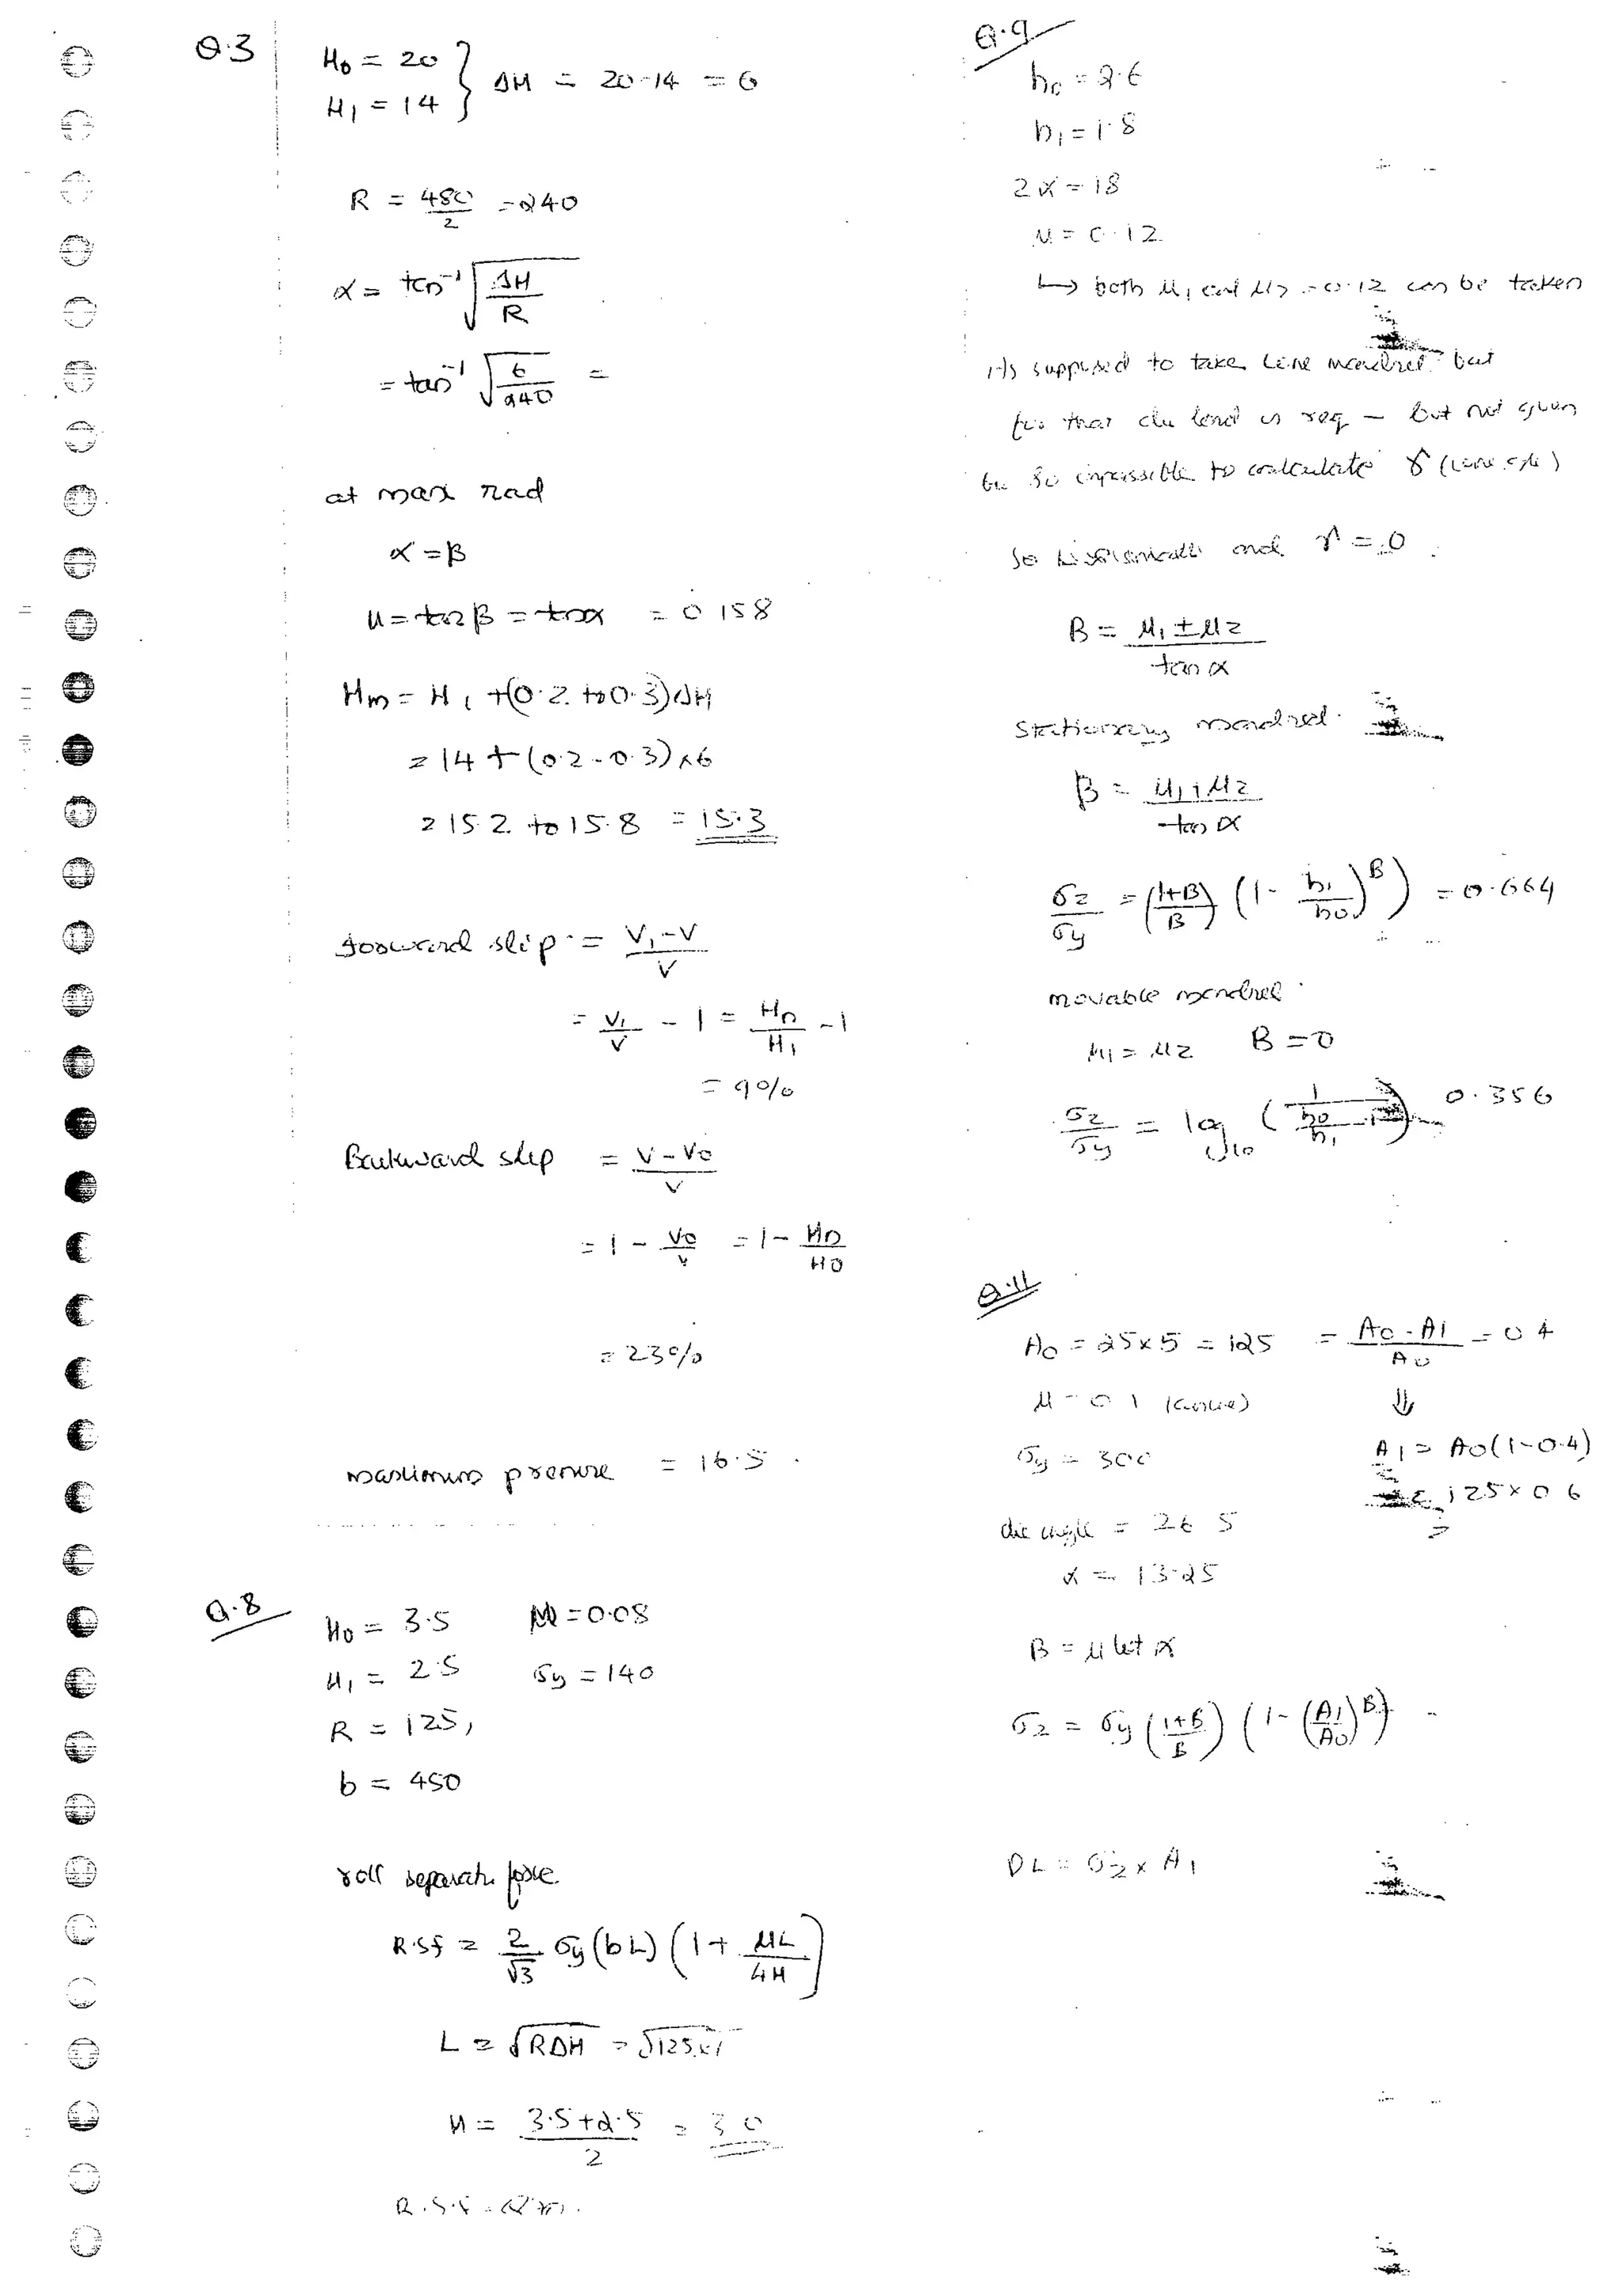 Q.3
H0 = 20
H1 = 14
ΔH = 20-14 = 6
R = 480/2 = 240
α = tan⁻¹ √(ΔH/R)
= tan⁻¹ √(6/240) =
at max rad
α = β
μ = tanβ = tanα = 0.158
Hn = H1 + (0.2 to 0.3)ΔH
= 14 + (0.2 - 0.3)×6
= 15.2 to 15.8 = 15.3
forward slip = (V1-V)/V
= V1/V - 1 = Hn/H1 - 1
= 9%
Backward slip = (V-V0)/V
= 1 - V0/V = 1 - Hn/H0
= 23%
maximum pressure = 16.5
Q.8
H0 = 3.5 μ = 0.08
H1 = 2.5 σy = 140
R = 125,
b = 450
roll separati force
R.Sf = 2/√3 σy (bL) (1 + μL/4H)
L = √RΔH = √125×1
H = (3.5+2.5)/2 = 3.0
R.S.f =
Q.9
h0 = 2.6
h1 = 1.8
2α = 18
μ = 0.12
↳ both μ1 and μ2 = 0.12 can be taken
its supposed to take mandrel but
for that is req - but not given
so impossible to calculate γ
So and γ = 0
B = (μ1 ± μ2)/tan α
Stationary mandrel
B = (μ1 + μ2)/tan α
σ2/σy = ((1+B)/B) (1 - (h1/h0)^B) = 0.664
movable mandrel
μ1 = μ2 B = 0
σ2/σy = log10 (1/(h0/h1)) 0.356
Q.11
A0 = 25×5 = 125 = (A0-A1)/A0 = 0.4
μ = 0.1 ⇓
σy = 300 A1 = A0(1-0.4)
= 125×0.6
die angle = 26.5 =
α = 13.25
B = μ cot α
σ2 = σy ((1+B)/B) (1 - (A1/A0)^B)
DL = σ2 × A1